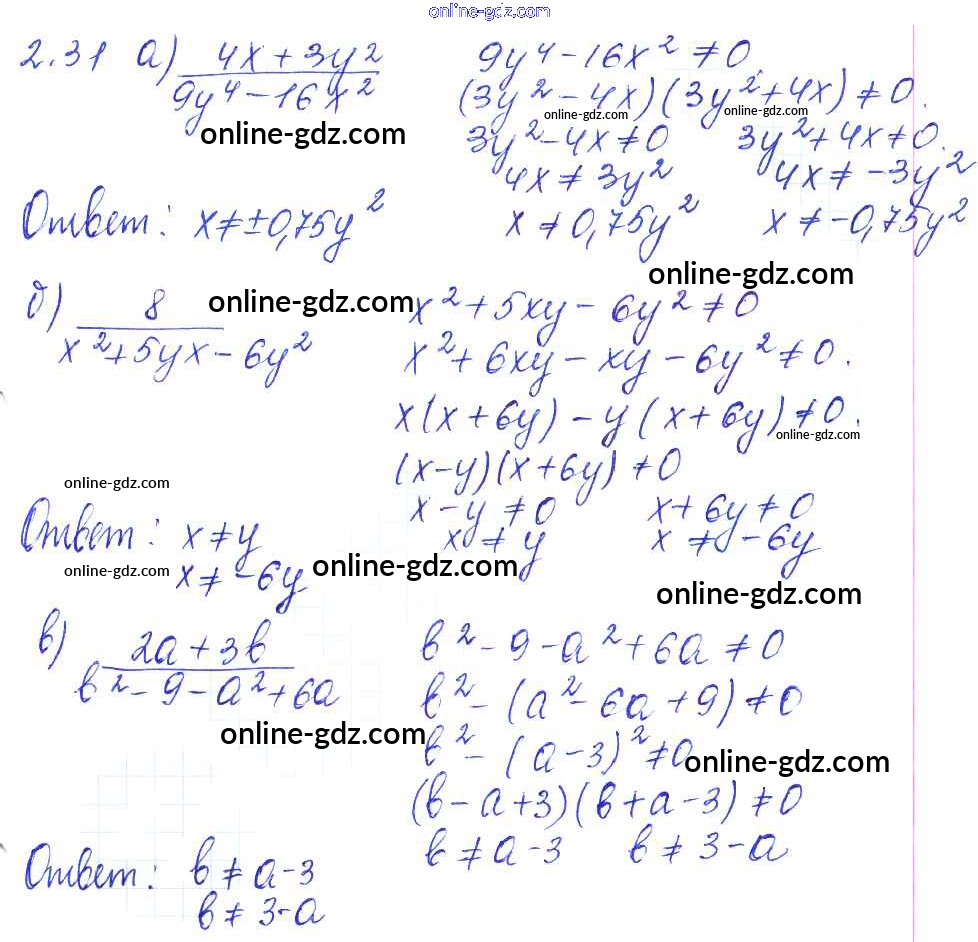 online-gdz.com
2.31 а) (4x + 3y²)/(9y⁴ - 16x²)    9y⁴ - 16x² ≠ 0
(3y² - 4x)(3y² + 4x) ≠ 0.
online-gdz.com    online-gdz.com    online-gdz.com
3y² - 4x ≠ 0    3y² + 4x ≠ 0.
4x ≠ 3y²    4x ≠ -3y²
Ответ: x ≠ ±0,75y²    x ≠ 0,75y²    x ≠ -0,75y²
online-gdz.com
б) 8/(x² + 5yx - 6y²)    online-gdz.com    x² + 5xy - 6y² ≠ 0
x² + 6xy - xy - 6y² ≠ 0.
x(x + 6y) - y(x + 6y) ≠ 0.
online-gdz.com
(x - y)(x + 6y) ≠ 0
online-gdz.com
x - y ≠ 0    x + 6y ≠ 0
Ответ: x ≠ y    x ≠ y    x ≠ -6y
online-gdz.com    x ≠ -6y    online-gdz.com
online-gdz.com
в) (2a + 3b)/(b² - 9 - a² + 6a)    b² - 9 - a² + 6a ≠ 0
b² - (a² - 6a + 9) ≠ 0
online-gdz.com    b² - (a - 3)² ≠ 0    online-gdz.com
(b - a + 3)(b + a - 3) ≠ 0
b ≠ a - 3    b ≠ 3 - a
Ответ: b ≠ a - 3
b ≠ 3 - a